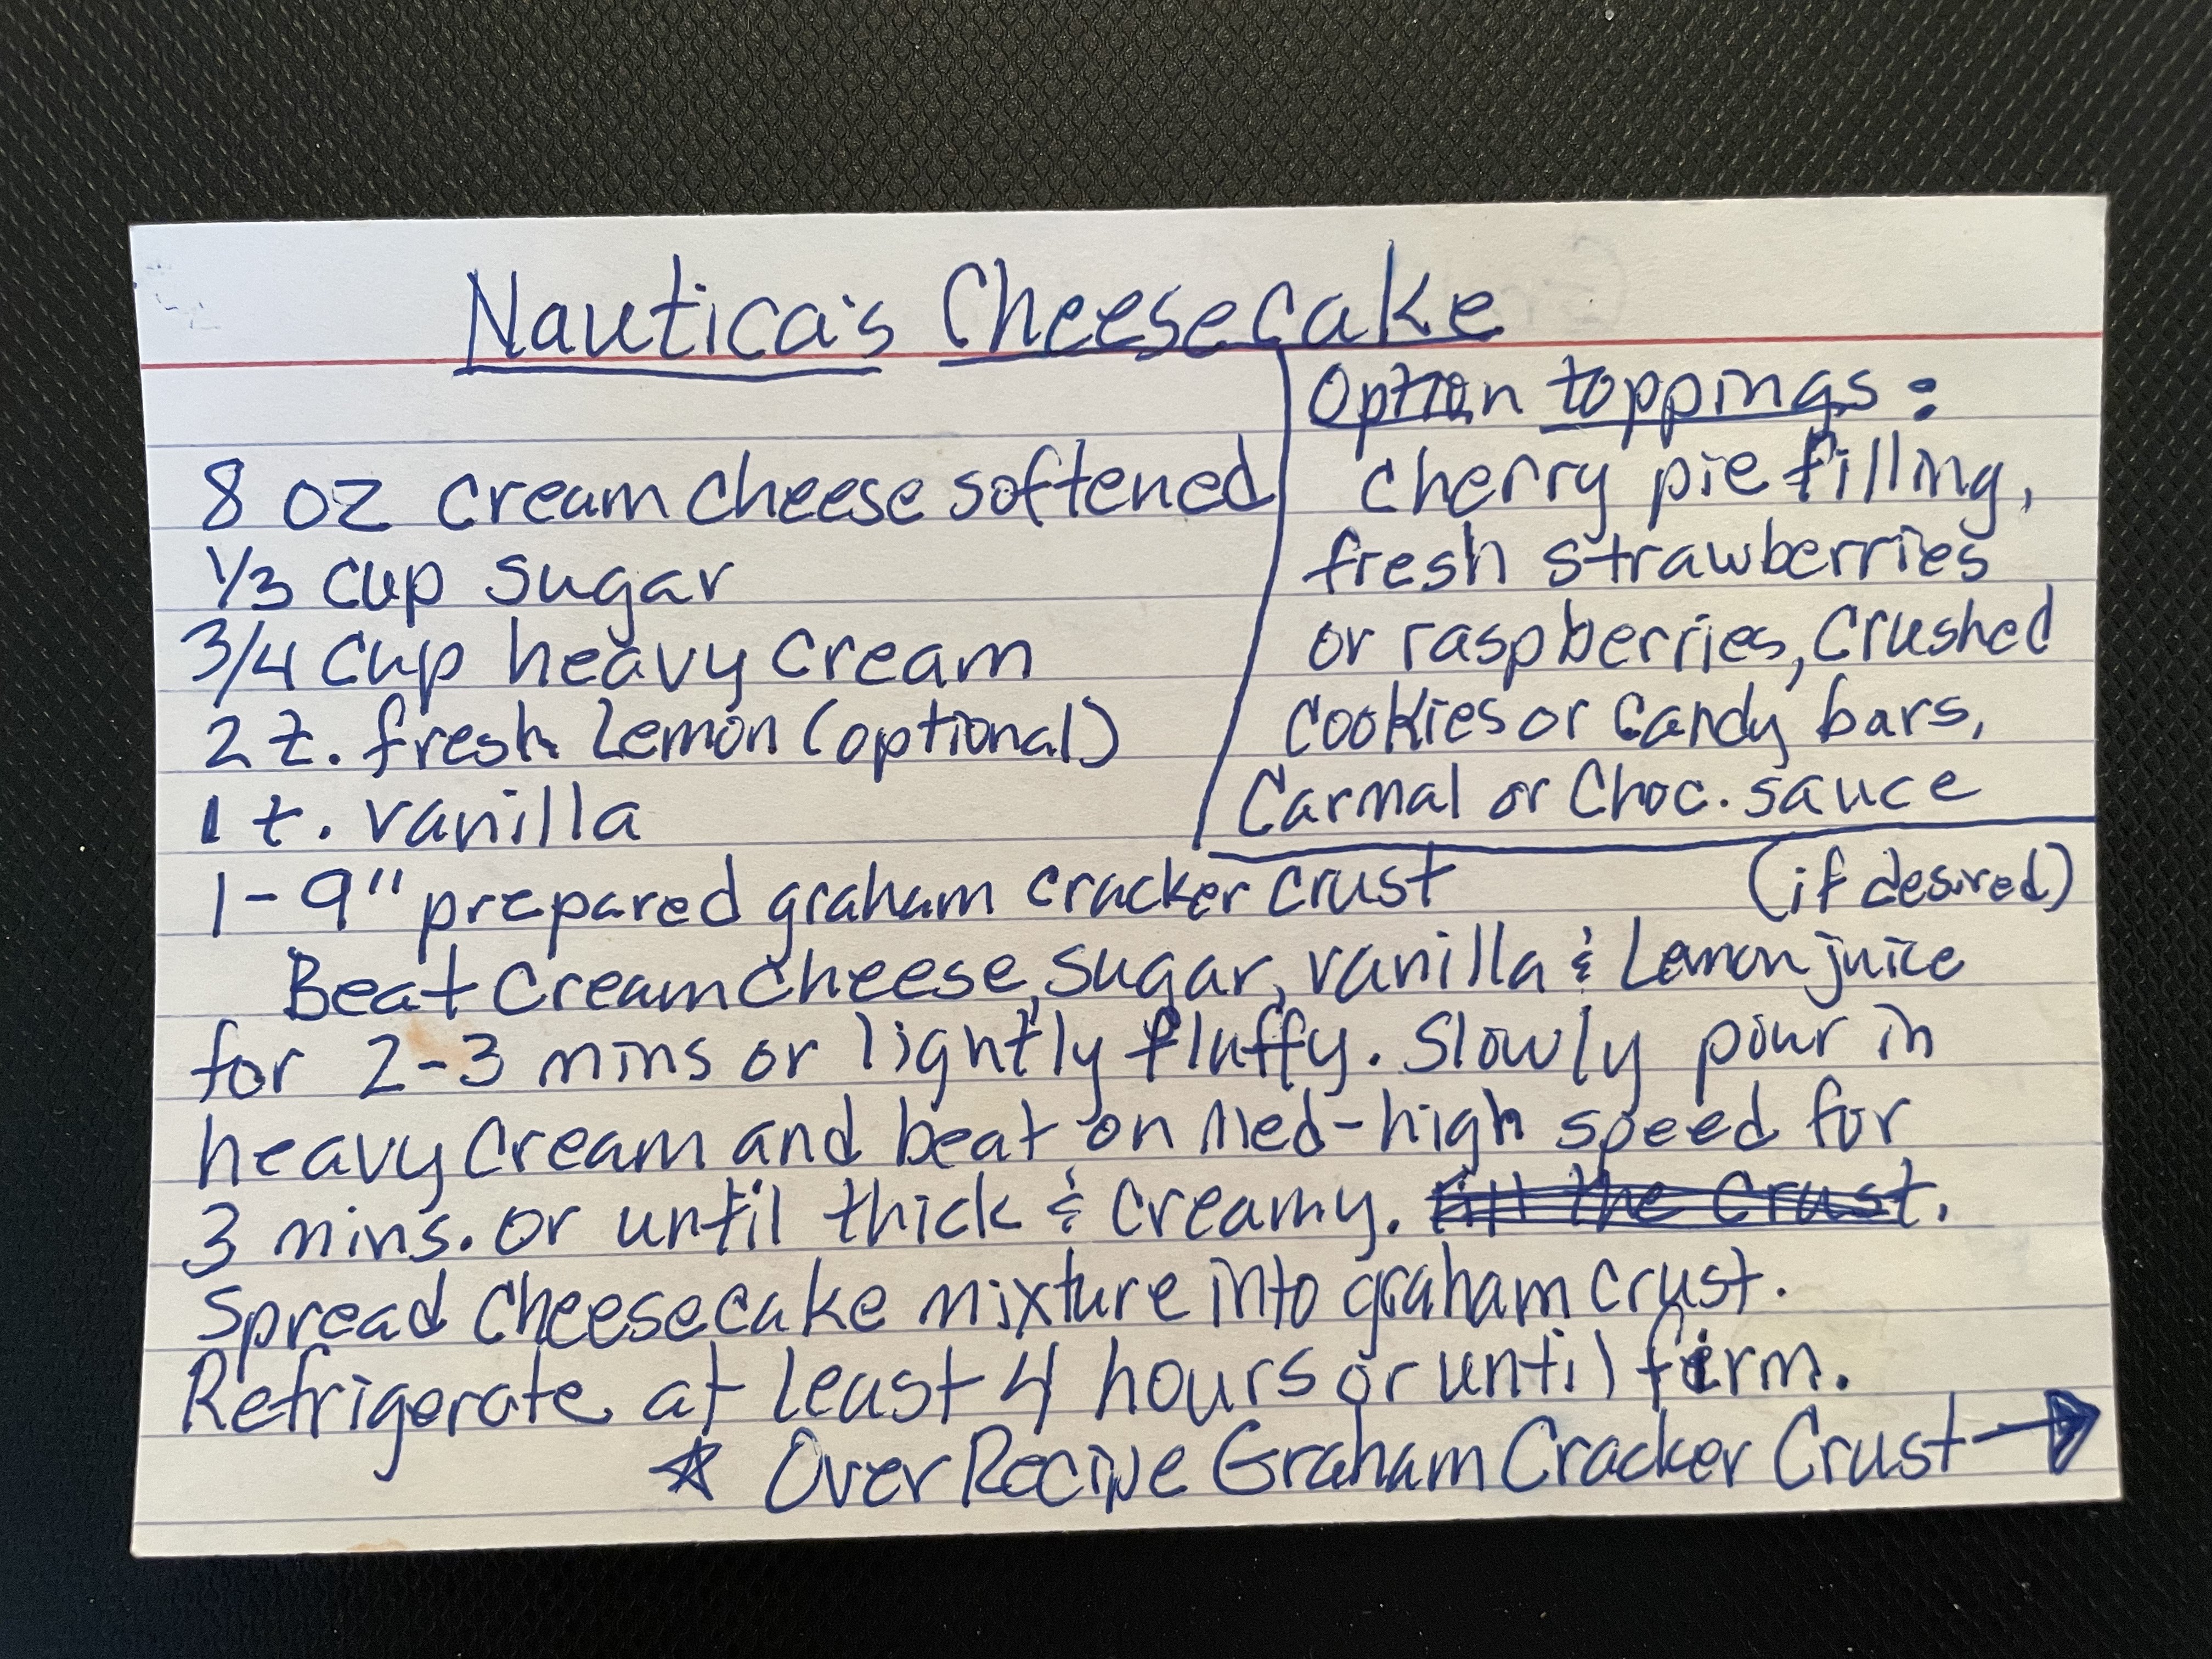 Nautica's Cheesecake
Option toppings:
cherry pie filling,
fresh strawberries
or raspberries, crushed
cookies or candy bars,
Carmal or Choc. sauce
8 oz cream cheese softened
1/3 cup sugar
3/4 cup heavy cream
2 t. fresh lemon (optional)
1 t. vanilla
1-9" prepared graham cracker crust
(if desired)
Beat cream cheese, sugar, vanilla & Lemon juice
for 2-3 mins or lightly fluffy. Slowly pour in
heavy cream and beat on Med-high speed for
3 mins. or until thick & creamy. fill the crust.
Spread cheesecake mixture into graham crust.
Refrigerate at least 4 hours or until firm.
☆ Over Recipe Graham Cracker Crust →